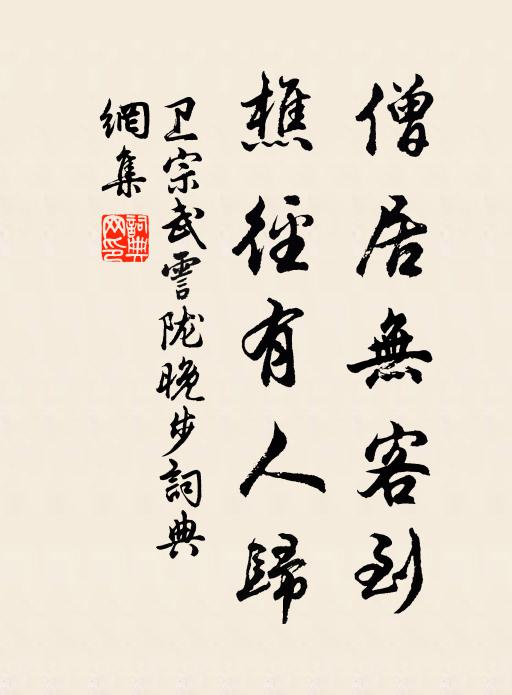 僧居無客到
樵徑有人歸
卫宗武雲陇晚步詞典
網集
詞典網印